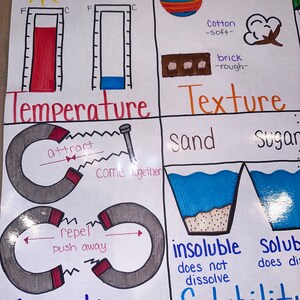 F C F C
Temperature
cotton
-soft-
brick
-rough-
Texture
attract
come together
repel
push away
sand sugar
insoluble
does not
dissolve